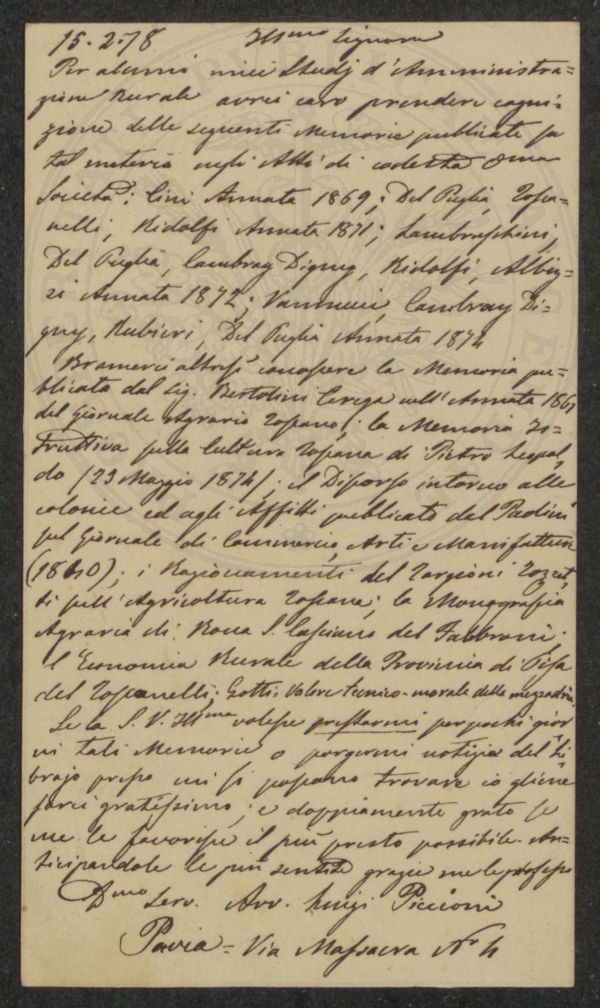 15.2.78 Ill.mo Signore
Per alcuni miei Studj d'Amministra=
zione Rurale avrei caro prendere cogni=
zione delle seguenti Memorie publicate su
tal materia negli Atti di codesta
Società: Cini Annata 1869; Del Puglia, Tosca=
nelli, Ridolfi Annata 1871; Lambruschini,
Del Puglia, Cambray Digny, Ridolfi, Albiz=
zi Annata 1872; Vannucci, Cambray Di=
gny, Rubieri, Del Puglia Annata 1874
Bramerei altresì conoscere la Memoria pu=
blicata dal Sig. Bertolini nell'Annata 186
del Giornale Agrario Toscano; la Memoria Is=
truttiva sulla Cultura Toscana di Pietro Leopol
do (23 Maggio 1874); il Discorso intorno alle
colonie ed agli Affitti publicato dal Paolini
sul Giornale di Commercio, Arti e Manifatture
(1840); i Ragionamenti del Targioni Tozzet
ti sull'Agricoltura Toscana; la Monografia
Agraria di Rocca S. Casciano del Fabbroni.
l'Economia Rurale della Provincia di Pisa
del Toscanelli; Gotti: Valore tecnico-morale della mezzadria
Se la S. V. Ill.ma volesse prestarmi per pochi gior
ni tali Memorie o porgermi notizia del Li
brajo presso cui si possano trovare io gliene
sarei gratissimo; e doppiamente grato se
me le favorisse il più presto possibile. An=
ticipandole le più sentite grazie me le professo
D.mo Serv. Avv. Luigi Piccioni
Pavia = Via Massacra N.r 4